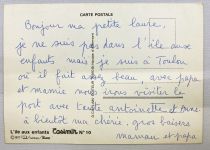 CARTE POSTALE
Bonjour ma petite laure,
je ne suis pas dans l'île aux
enfants mais je suis à Toulon
où il fait assez beau, avec papa
et mamie nous irons visiter le
port avec tante antoinette et
à bientôt ma chérie, gros baisers
maman et papa
L'île aux enfants Casimir N° 10